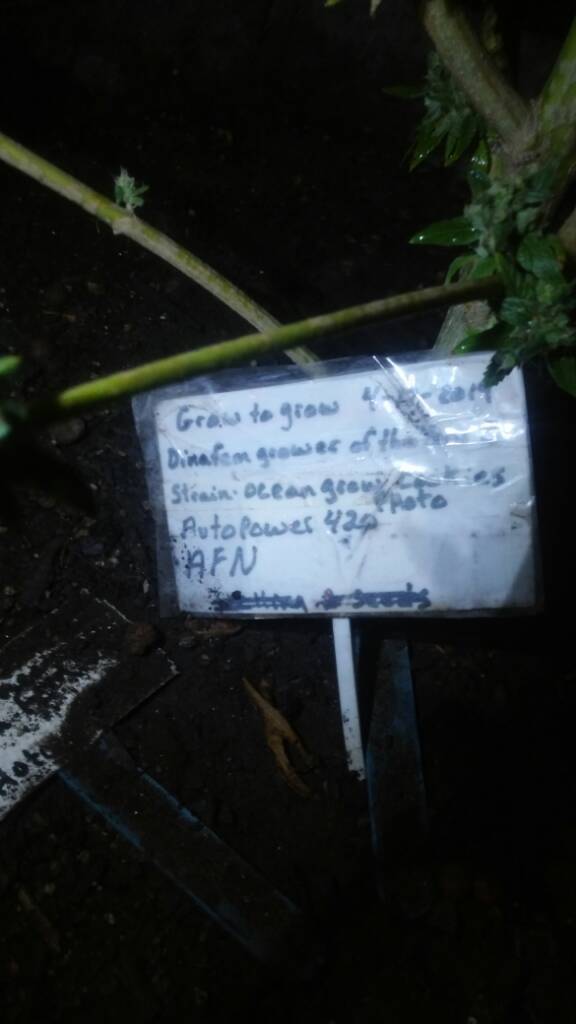 Grow to grow 4- 2019
Dinafem grower of the
Strain: Ocean grown Cookies
Photo
AutoPower 420
AFN
& Seeds